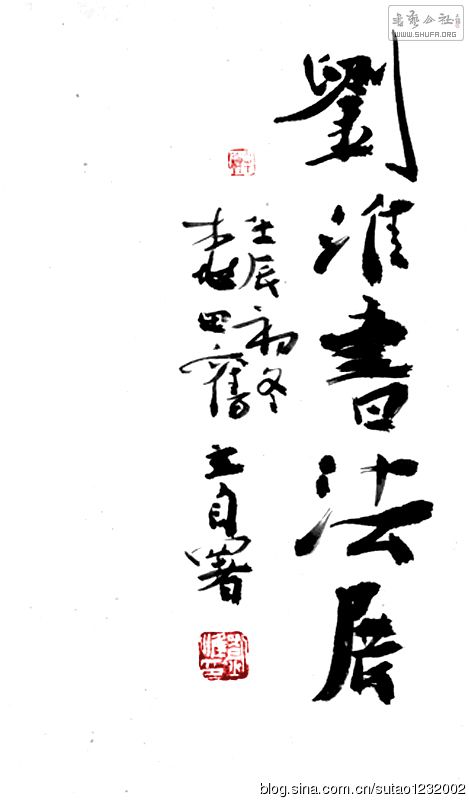 书艺公社
WWW.SHUFA.ORG
劉淮書法展
壬辰初冬
田齋主自署
blog.sina.com.cn/sutao1232002